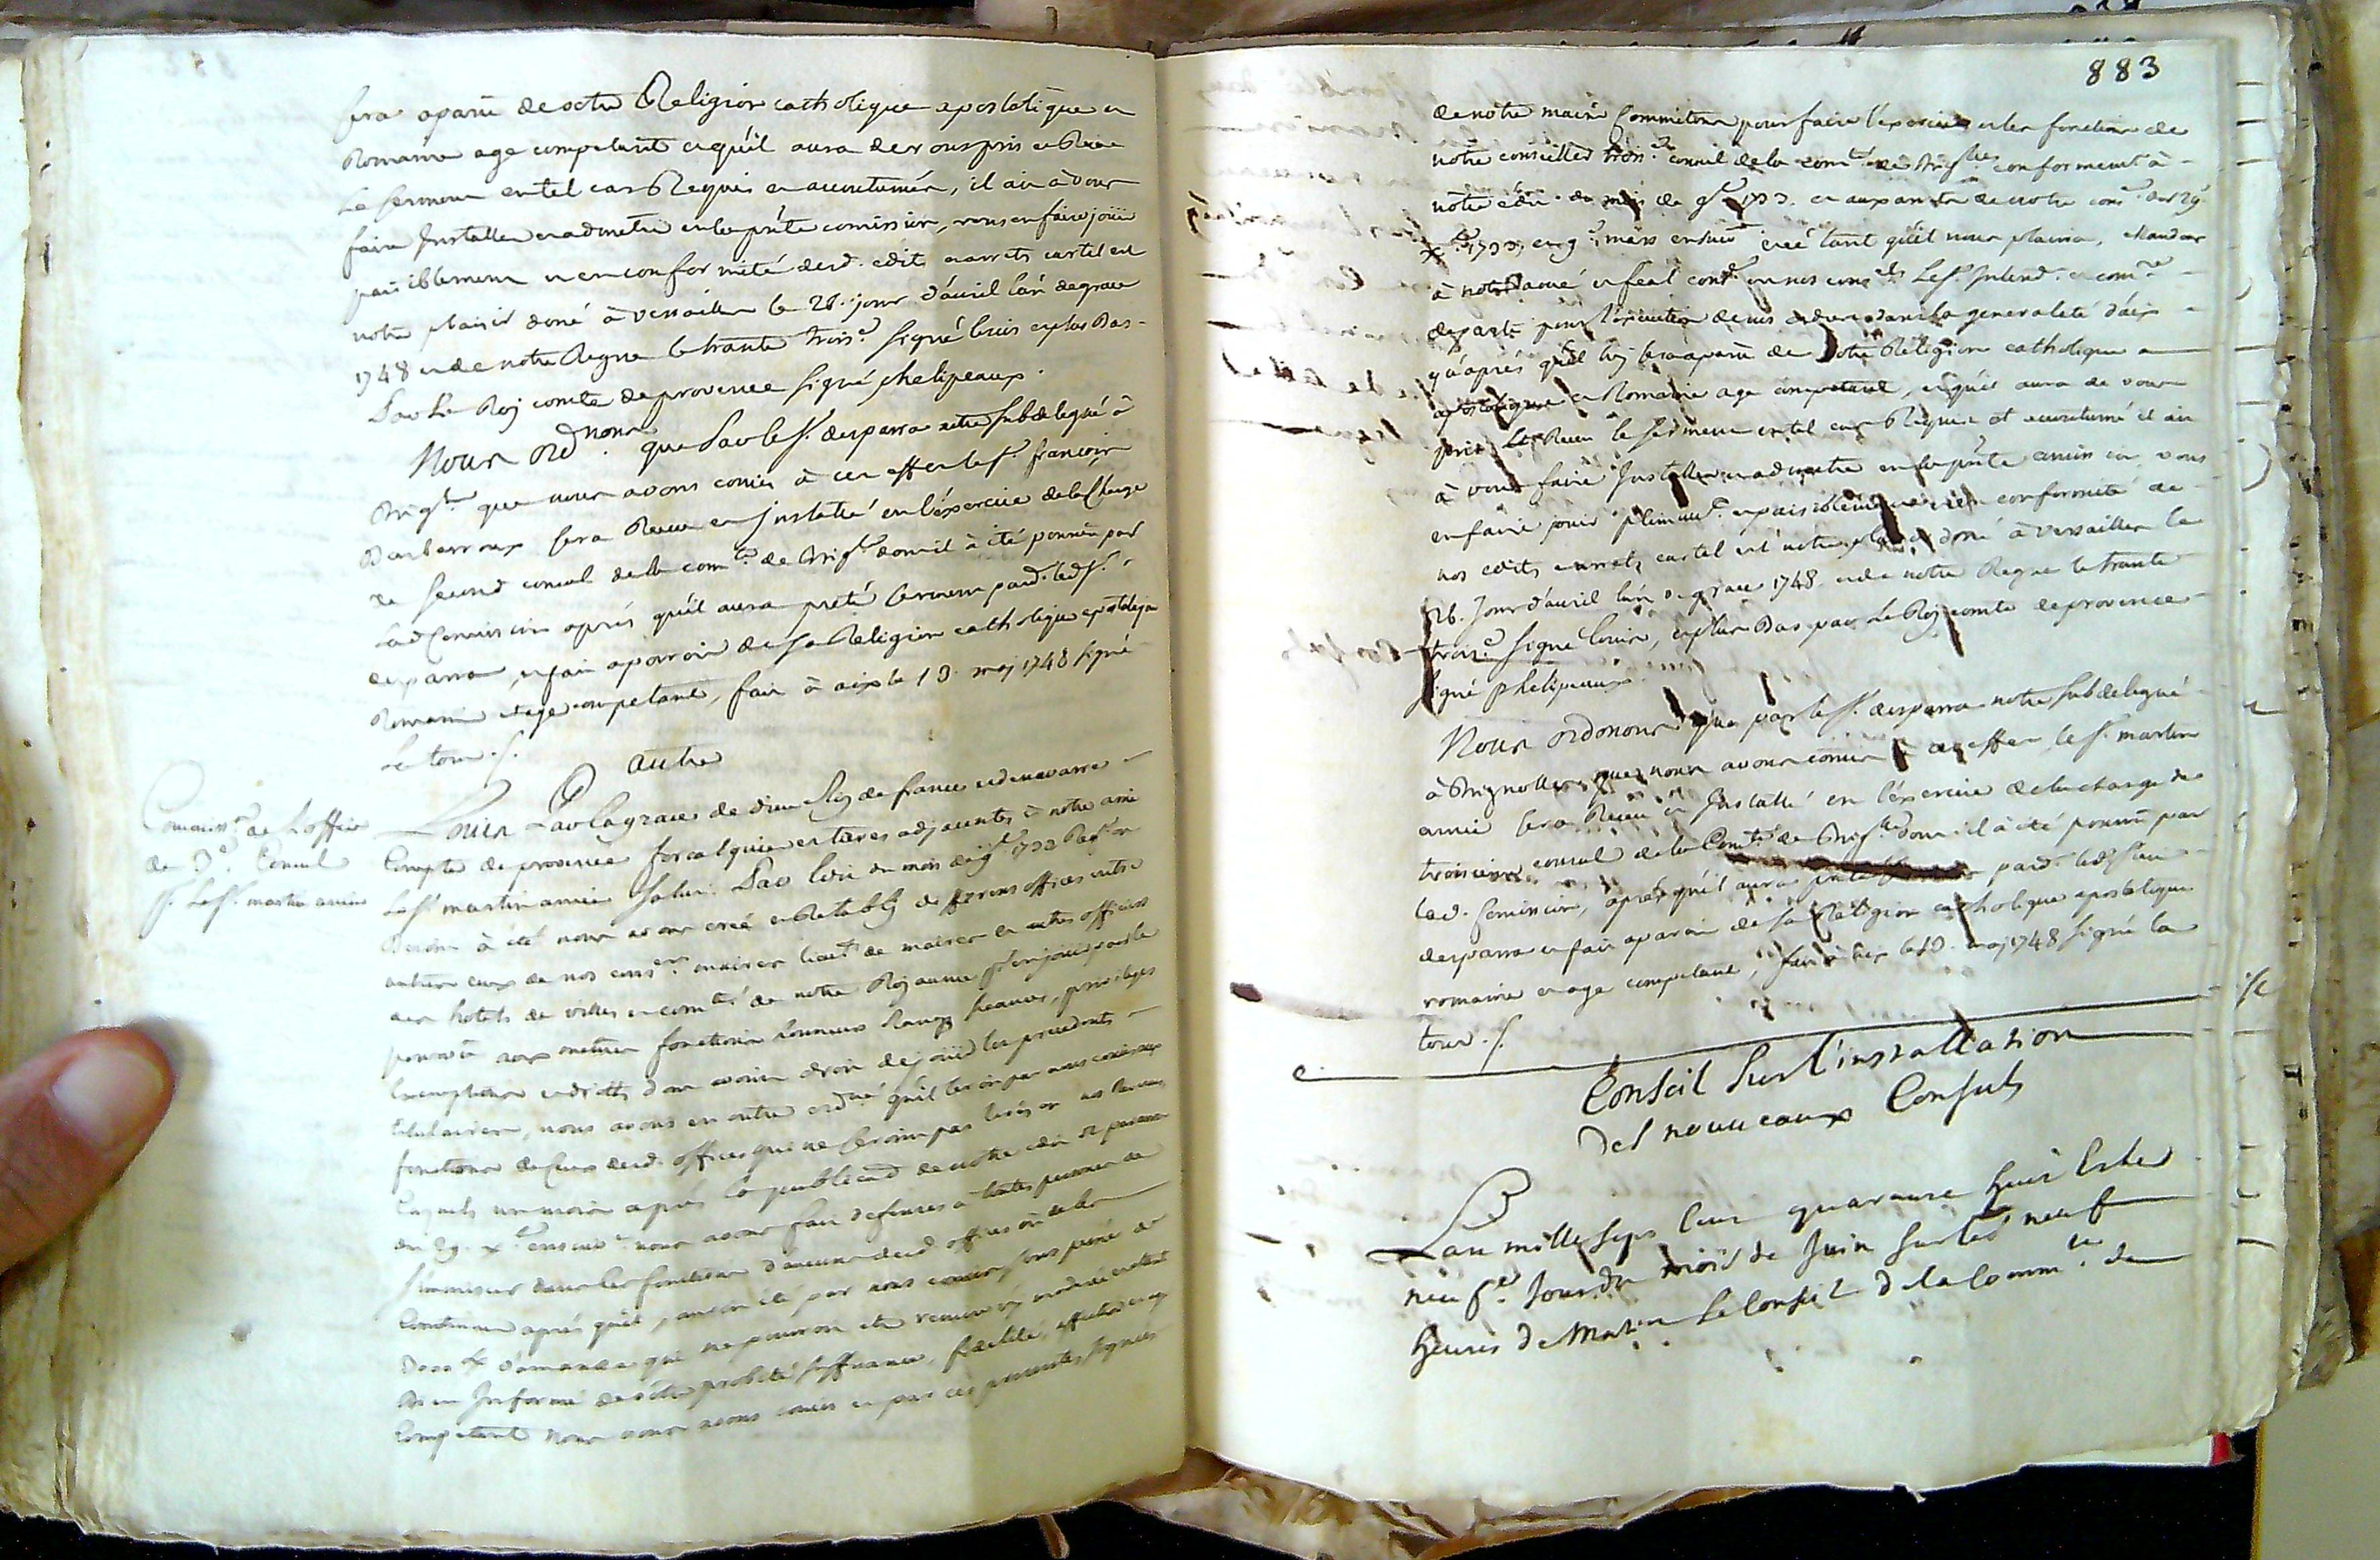 sera aparu de votre Religion catholique apostolique et
Romaine age competant et qu'il aura de vous pris et Receu
Le serment en tel cas Requis et accoutumés, il ait à vous
faire Installer et admetre en la pnte comission, vous en faire joüir
paisiblement et en conformité desd. edits et arrets car tel est
notre plaisir doné à versailles le 28. jour d'avril l'an de grace
1748 et de notre Regne le trante trois.e signé louis et plus Bas
Par Le Roy comte de provence signé phelipeaux.
Nous ord.nons que Par le s.r desparra notre subdelegué à
Brig.les que nous avons comis à cet effet le s.r francois
Barbarroux sera Receu et Installé en l'exercice de la Charge
de second consul de la com.té de Brig.les dont il à été pourvû par
Lad Comission aprés qu'il aura preté serment pard. led s.r
desparra, et fait aparoir de sa Religion catholique apostolique
Romaine et age competant, fait à aix le 13. may 1748 signé
La tour. /.
autre
Comiss.on de L'office
de 3.e Consul
p.r Le s.r martin amic
Louis Par la grace de dieu Roy de france et de navarre
Compte de provence forcalquier et terres adjacentes à notre amé
Le s.r martin amic Salut. Par l'edit du mois de 9.bre 1733
Besoin à eté nous avons creé et Retably differens offices entre
autres ceux de nos cons.ers maires lieut.s de maires et autres officiers
des hotels de villes et com.tés de notre Royaume p.r en joüir par les
pourvûs aux mêmes fonctions honneurs Rangs seances, privileges
Exemptions et droits dont avoient droit de joüir les precedents
titulaires, nous avons en outre ord.né qu'il seroit par nous comis aux
fonctions de Ceux desd. offices qui ne seroient pas levés en nos Revenus
Casuels un mois aprés la publica.on de notre edit et par arret
du 29. x.bre ensuiv.t nous avons fait defenses à toutes personnes de
simmiscer dans les fonctions d'aucuns desd offices ou de les
Continuer aprés qu'il y auroit été par nous comis sous peine de
D'amande qui ne pourroit etre remise ny moderée et etant
Bien Informé de votre probité suffisance, fidelité, affection et age
Competant nous vous avons comis et par ces presentes signées
883
de notre main Commetons pour faire l'exercice et les fonctions de
notre conseiller trois.e consul de la com.té de Brig.les conforment à
notre edit du mois de 9.bre 1733. et aux arrets de notre cons.l des 29
x.bre 1733, et 9.e mars ensuiv.t et ce tant qu'il nous plaira, Mandons
à notre amé et feal cons.er en nos cons.els Le s.r Intend.t et com.re
departi pour l'execution de nos ordres dans la generalité d'aix
qu'aprés qu'il luy sera aparu de Votre Religion catholique
apostolique et Romaine age competant, et qu'il aura de vous
pris et Receu le serment en tel cas Requis et accoutumé il ait
à vous faire Installer et admetre en la pnte comission vous
en faire jouir plainem.t et paisiblement et en conformité de
nos edits et arrets, car tel est notre plaisir doné à versailles le
28. Jour d'avril l'an de grace 1748. et de notre Regne le trante
trois.e signé louis, et plus Bas par Le Roy comte de provence
signé phelipeaux.
Nous ordonons que par le s.r desparra notre subdelegué
à Brignolles que nous avons comis à cet effet le s.r martin
amic sera Receu et Installé en l'exercice de la charge de
troisieme consul de la Com.té de Brig.les dont il à été pourvû par
lad. Comission, aprés qu'il aura preté serment pard. led s.r
desparra et fait aparoir de sa Religion catholique apostolique
romaine et age competant, fait à aix le 13. may 1748 signé la
tour. /.
Conseil sur l'installation
des nouveaux Consuls
L'an mille sept cens quarante huit & le
neuf.e Jour du mois de Juin sur les neuf
heures de Matin Le Conseil de la Comm.té de